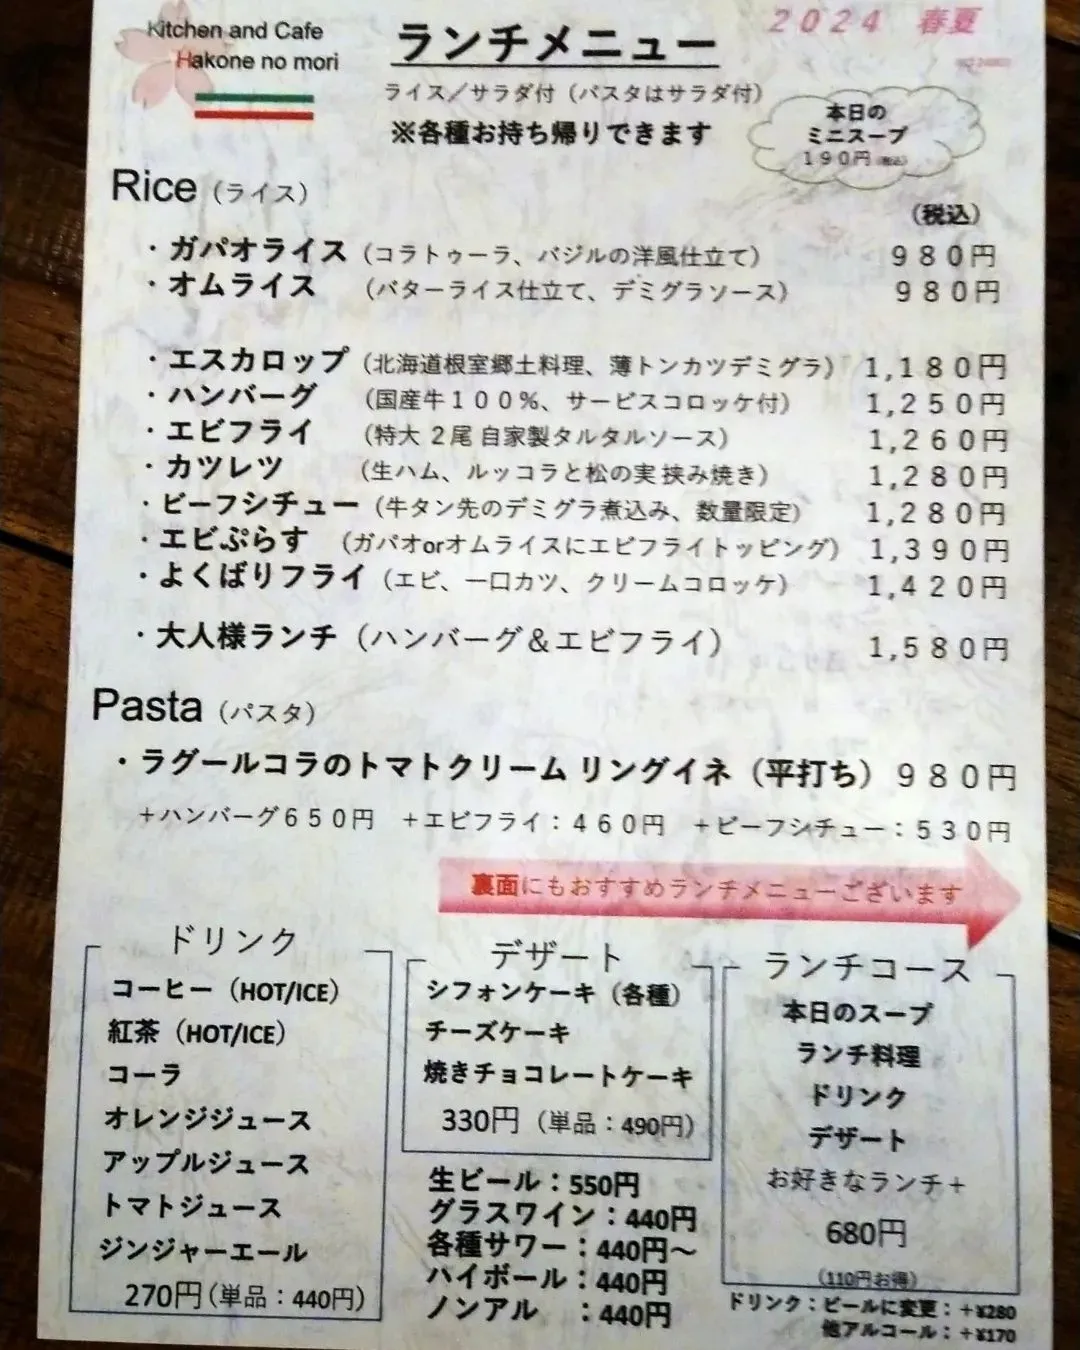 Kitchen and Cafe
Hakone no mori
ランチメニュー
2024 春夏
ライス／サラダ付（パスタはサラダ付）
※各種お持ち帰りできます
本日の
ミニスープ
190円（税込）
Rice（ライス）
（税込）
・ガパオライス（コラトゥーラ、バジルの洋風仕立て） 980円
・オムライス （バターライス仕立て、デミグラソース） 980円
・エスカロップ（北海道根室郷土料理、薄トンカツデミグラ） 1,180円
・ハンバーグ （国産牛100%、サービスコロッケ付） 1,250円
・エビフライ （特大２尾 自家製タルタルソース） 1,260円
・カツレツ （生ハム、ルッコラと松の実 挟み焼き） 1,280円
・ビーフシチュー（牛タン先のデミグラ煮込み、数量限定） 1,280円
・エビぷらす （ガパオorオムライスにエビフライトッピング） 1,390円
・よくばりフライ（エビ、一口カツ、クリームコロッケ） 1,420円
・大人様ランチ（ハンバーグ＆エビフライ） 1,580円
Pasta（パスタ）
・ラグールコラのトマトクリーム リングイネ（平打ち）980円
＋ハンバーグ650円 ＋エビフライ：460円 ＋ビーフシチュー：530円
裏面にもおすすめランチメニューございます
ドリンク
コーヒー（HOT/ICE）
紅茶（HOT/ICE）
コーラ
オレンジジュース
アップルジュース
トマトジュース
ジンジャーエール
270円（単品：440円）
デザート
シフォンケーキ（各種）
チーズケーキ
焼きチョコレートケーキ
330円（単品：490円）
生ビール：550円
グラスワイン：440円
各種サワー：440円～
ハイボール：440円
ノンアル ：440円
ランチコース
本日のスープ
ランチ料理
ドリンク
デザート
お好きなランチ＋
680円
（110円お得）
ドリンク：ビールに変更：＋¥280
他アルコール：＋¥170